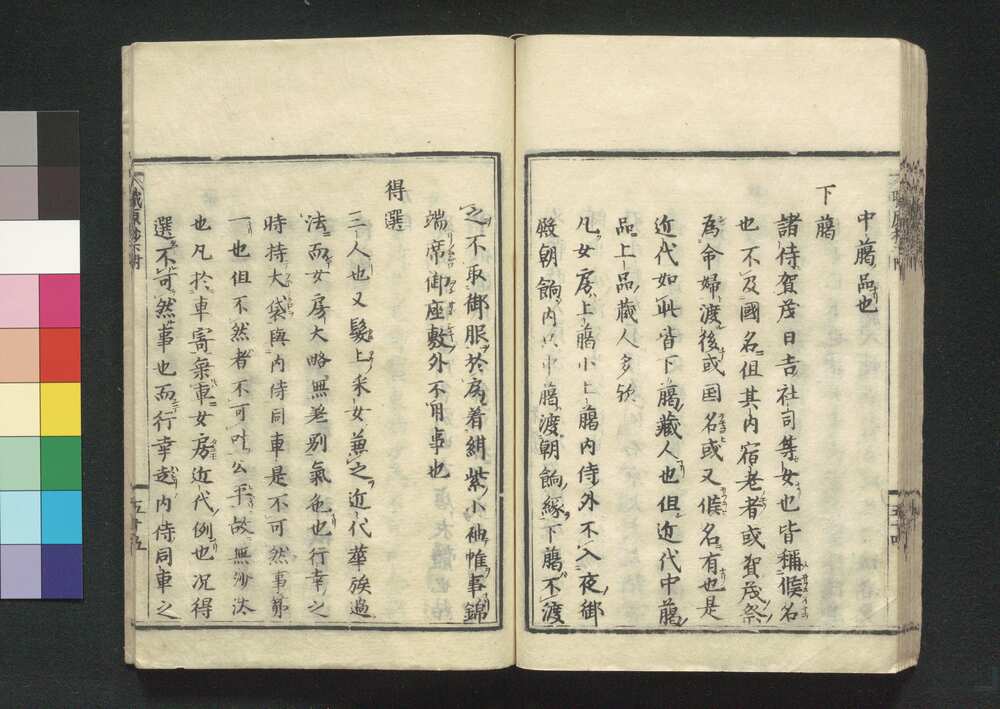 中﨟品也
下﨟
諸侍賀茂日吉社司等女也皆稱候名
也不及國名但其内宿老者或賀茂祭
為命婦渡後或国名或又候名有也是
近代如此皆下﨟蔵人也但近代中﨟
品上品蔵人多欤
凡女房上﨟小上﨟内侍外不入夜御
殿朝餉内以中﨟渡朝餉縁下﨟不渡
之不取御服於房着紺紫小袖帷事錦
端席御座敷外不用事也
得選
三人也又髪上釆女兼之近代華族過
法而女房大略無差別氣色也行幸之
時持大袋與内侍同車是不可然事第
一也但不然者不可叶公平故無沙汰
也凡於車寄乗車女房近代例也况得
選不可然事也而行幸時内侍同車之
職原抄下附
五十五